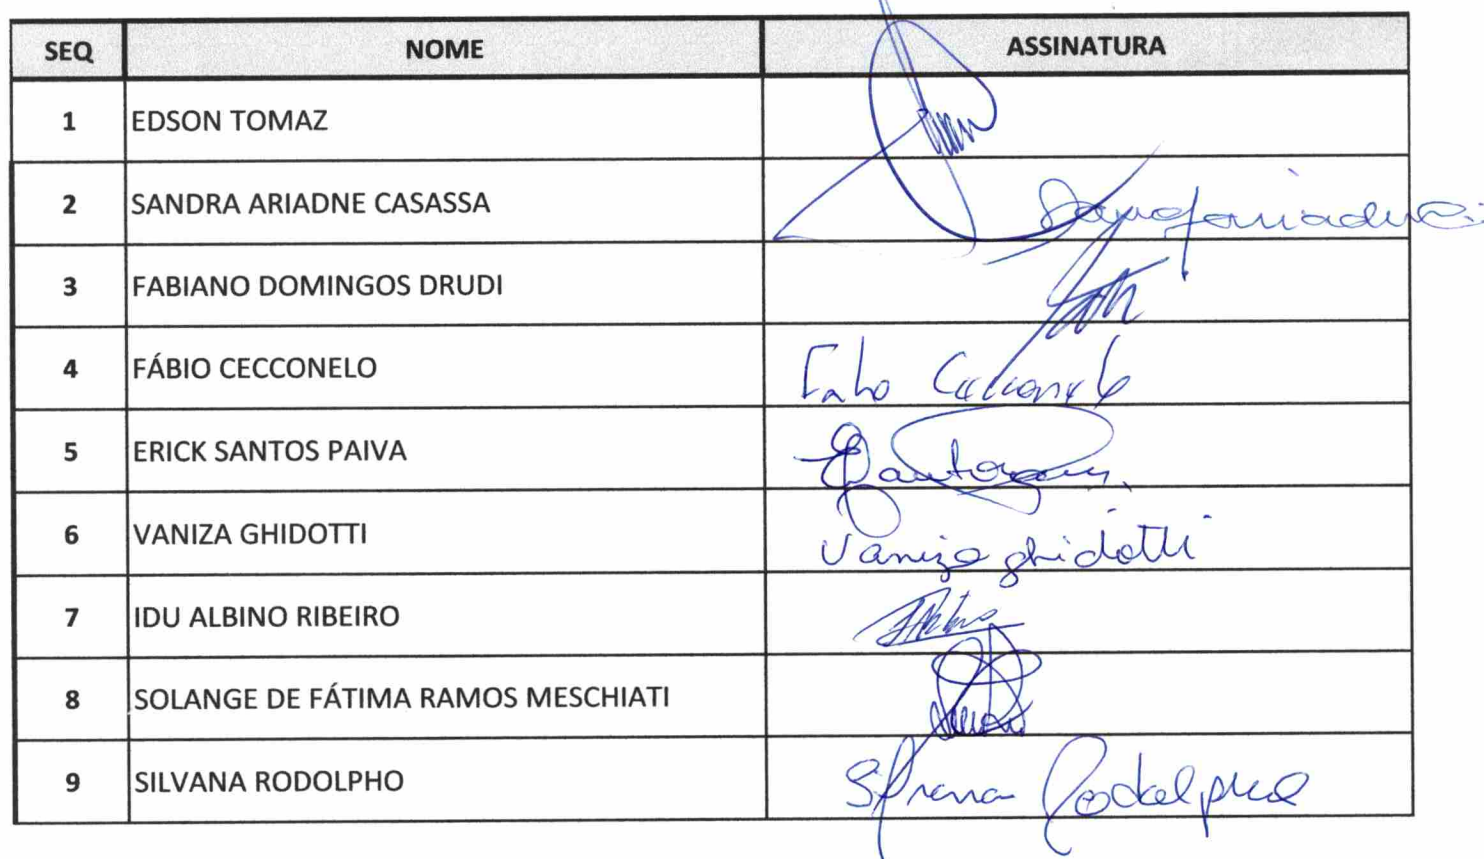 SEQ NOME ASSINATURA
1 EDSON TOMAZ
2 SANDRA ARIADNE CASASSA
3 FABIANO DOMINGOS DRUDI
4 FÁBIO CECCONELO
5 ERICK SANTOS PAIVA
6 VANIZA GHIDOTTI Vaniza ghidotti
7 IDU ALBINO RIBEIRO
8 SOLANGE DE FÁTIMA RAMOS MESCHIATI
9 SILVANA RODOLPHO Silvana Rodolpho